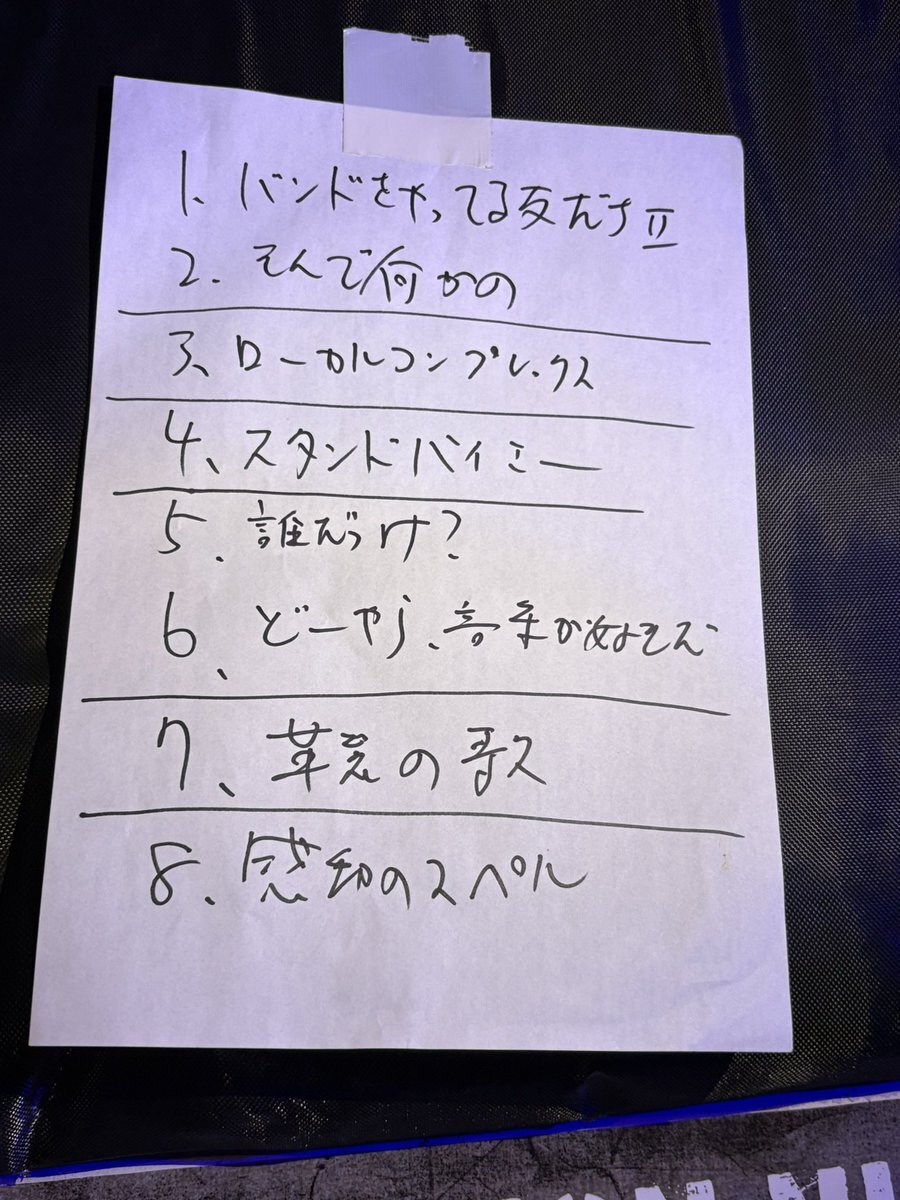 1. バンドをやってる友だちⅡ
2. そんで何かの
3、ローカルコンプレックス
4、スタンドバイミー
5、誰だっけ?
6、どーやら、音楽が好きそだ
7、革荒の歌
8、感動のスペル